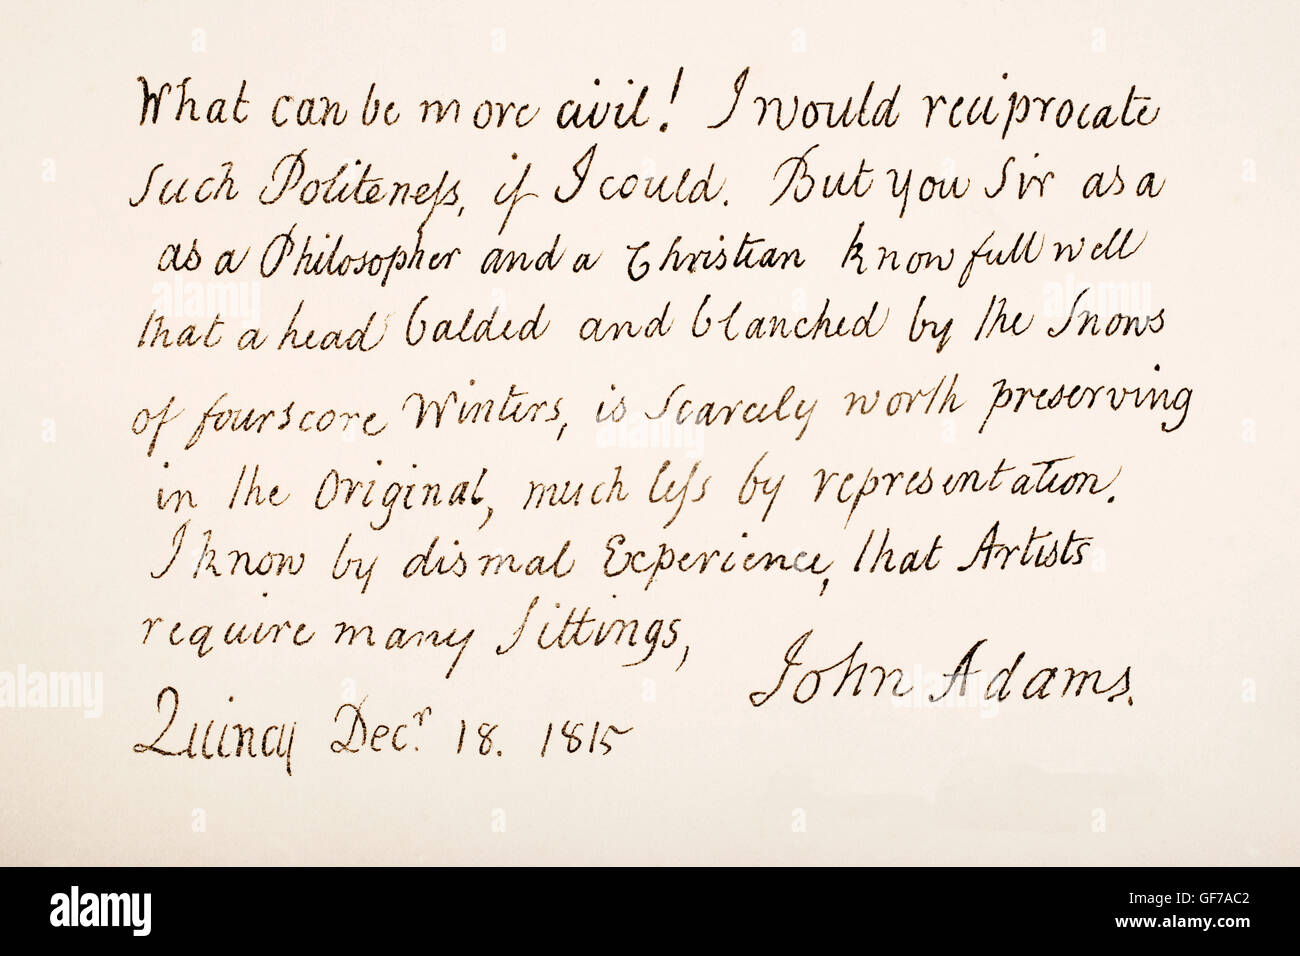 What can be more civil! I would reciprocate
such Politeneſs, if I could. But you Sir as a
as a Philosopher and a Christian know full well
that a head balded and blanched by the Snows
of fourscore Winters, is scarcely worth preserving
in the Original, much leſs by representation.
I know by dismal Experience, that Artists
require many Sittings,
John Adams.
Quincy Decr. 18. 1815
alamy
Image ID: GF7AC2
www.alamy.com